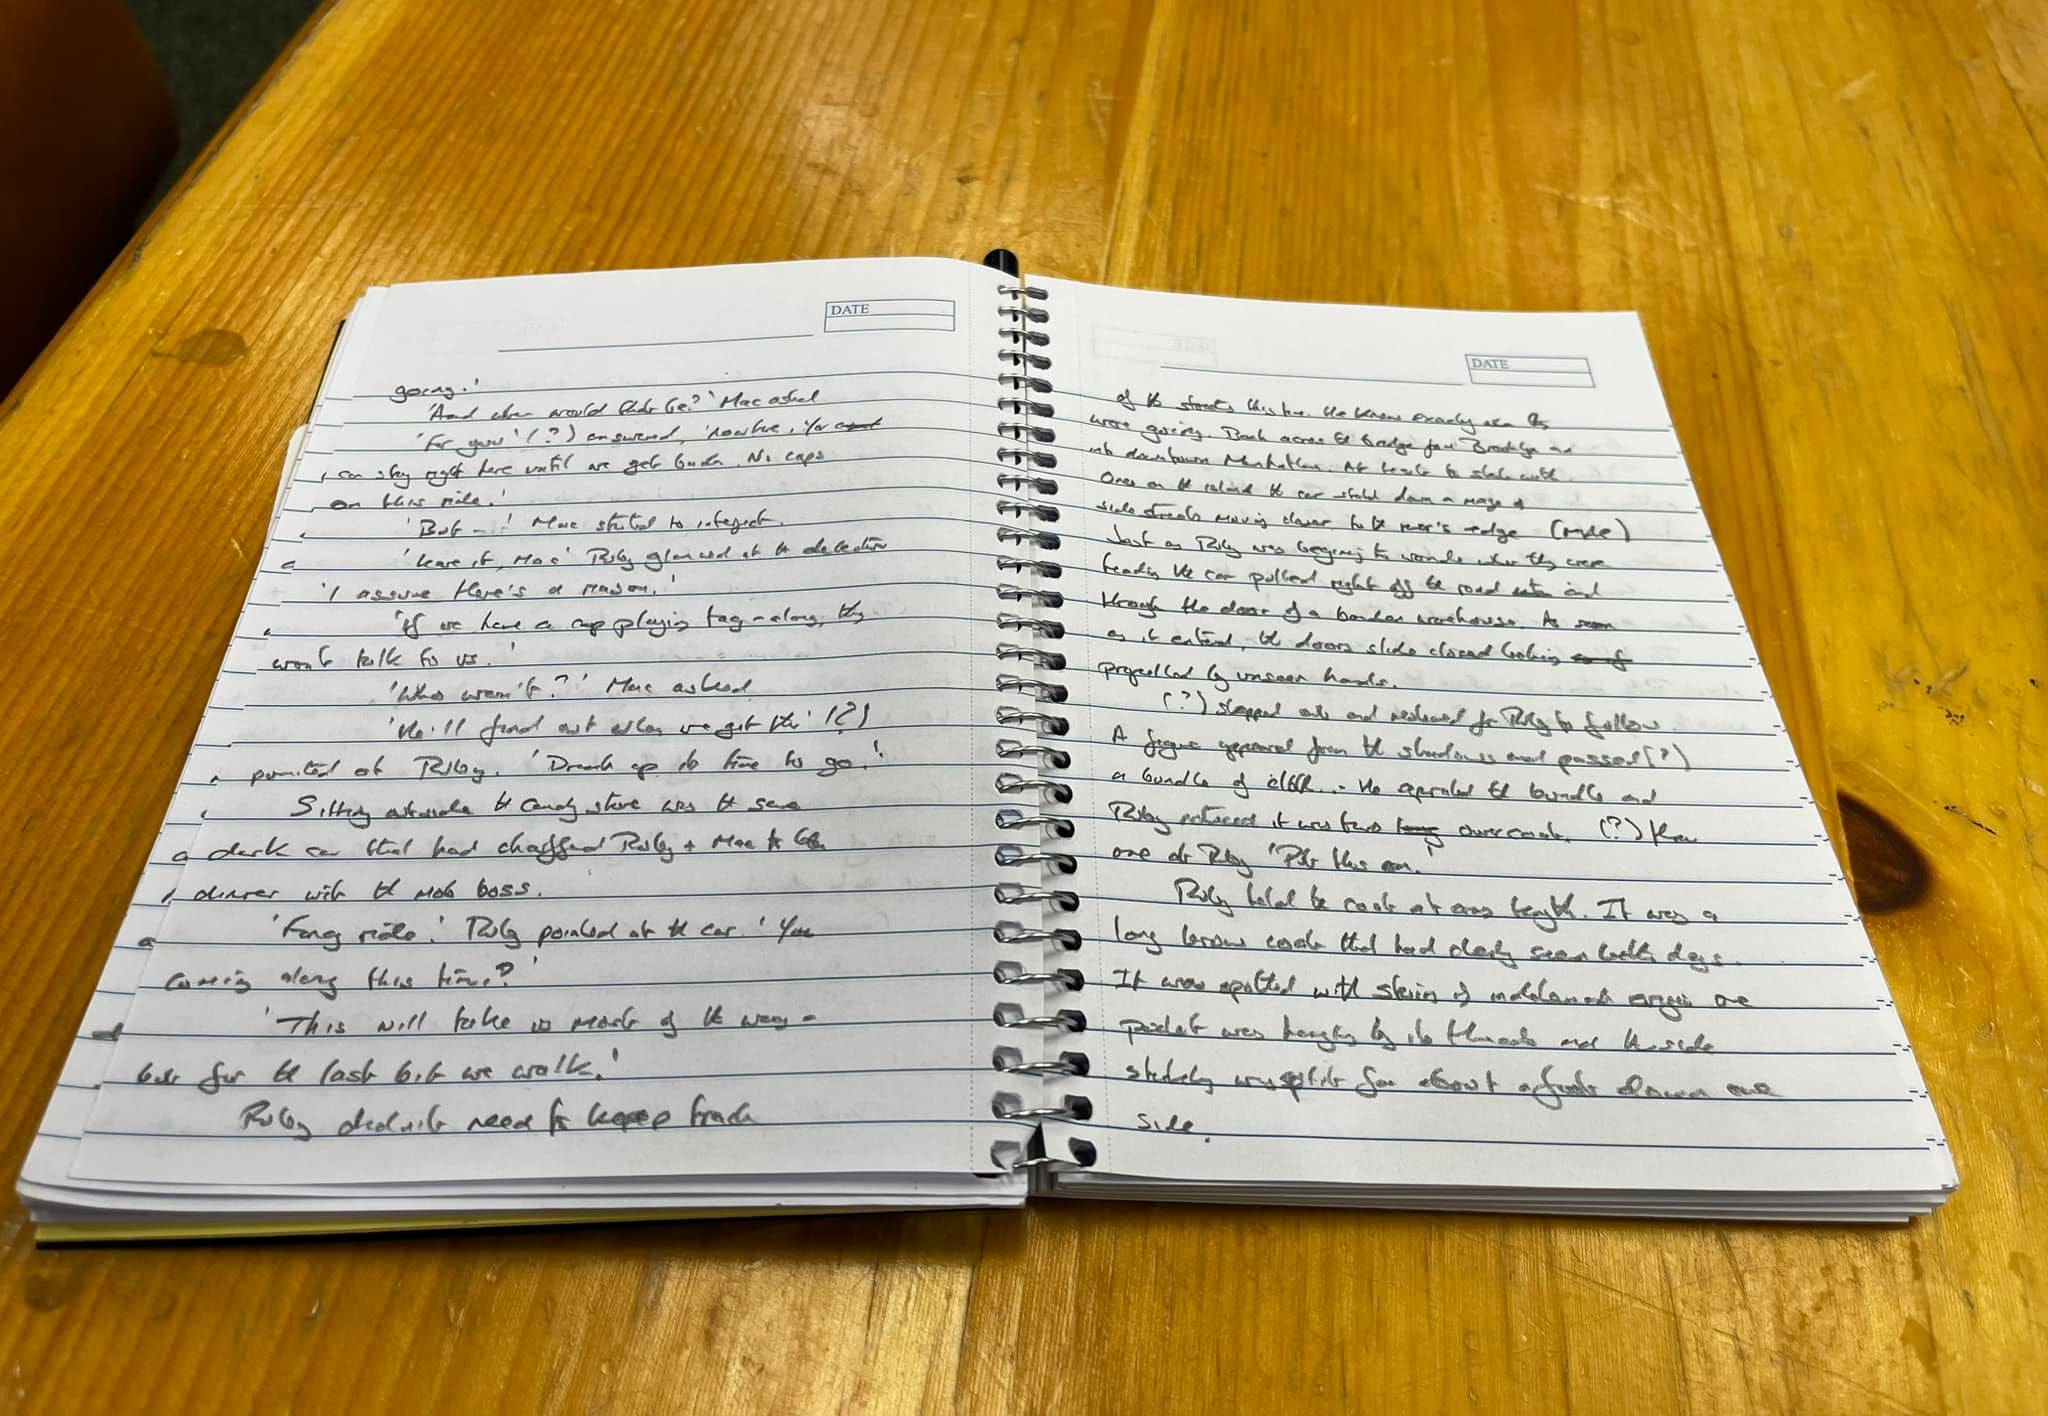 DATE
going.'
'And when would that be?' Mac asked
'For you' (?) answered, 'nowhere. You
can stay right here until we get back. No cops
on this ride.'
'But – ' Mac started to interject.
'Leave it, Mac' Riley glanced at the detective
'I assume there's a reason.'
'If we have a cop playing tag-along, they
won't talk to us.'
'Who won't?' Mac asked
'He'll find out when we get there' (?)
pointed at Riley. 'Drink up its time to go.'
Sitting outside the candy store was the same
dark car that had chauffered Riley + Mac to
dinner with the mob boss.
'Fancy ride.' Riley pointed at the car. 'You
coming along this time?'
'This will take us most of the way –
but for the last bit we walk.'
Riley didn't need to keep track
DATE
of the streets this time. He knew exactly where they
were going. Back across the bridge from Brooklyn and
into downtown Manhattan. At least to start with.
Once on the island the car stole down a maze of
side streets moving closer to the river's edge (more)
Just as Riley was beginning to wonder where they were
heading the car pulled right off the road and
through the door of a warehouse. As soon
as it entered, the doors slide closed
propelled by unseen hands.
(?) stepped out and motioned for Riley to follow.
A figure appeared from the shadows and passed (?)
a bundle of cloth. He separated the bundle and
Riley noticed it was two overcoats. (?) threw
one at Riley 'Put this on.'
Riley held the coat at arms length. It was a
long brown coat that had clearly seen better days.
It was spotted with stains of indeterminate origin one
pocket was hanging by its threads and the side
was split for about a foot down one
side.